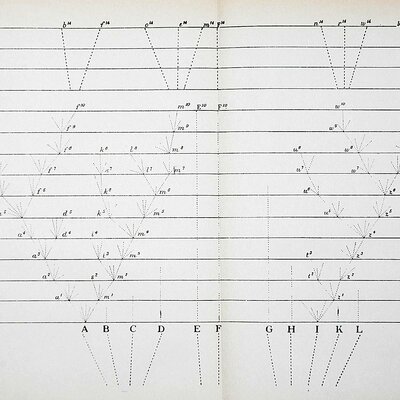 b¹⁴ f¹⁴ o¹⁴ e¹⁴ m¹⁴ F¹⁴ n¹⁴ r¹⁴ w¹⁴
f¹⁰ m¹⁰ E¹⁰ F¹⁰ w¹⁰
f⁹ m⁹ w⁹
f⁸ k⁸ l⁸ m⁸ u⁸ w⁸
f⁷ k⁷ l⁷ m⁷ u⁷ w⁷
f⁶ k⁶ m⁶ u⁶ z⁶
a⁵ d⁵ k⁵ m⁵ u⁵ z⁵
a⁴ d⁴ i⁴ m⁴ z⁴
a³ i³ m³ t³ z³
a² s² m² t² z²
a¹ m¹ z¹
A B C D E F G H I K L